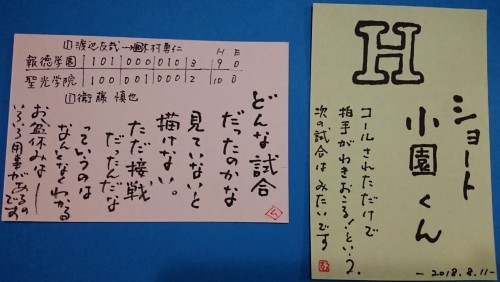 ①渡辺友哉→木村勇仁
H E
報徳学園 101 000 010 3 9 0
聖光学院 100 001 000 2 10 0
①衛藤慎也
どんな試合
だったのかな
見ていないと
描けない。
ただ接戦
だったんだな
っていうのは
なんとなくわかる
お盆休みはー
いろいろ用事があるのです
H
ショート
小園くん
コールされただけで
拍手がわきおこる!という。
次の試合はみたいです
-2018.8.11-